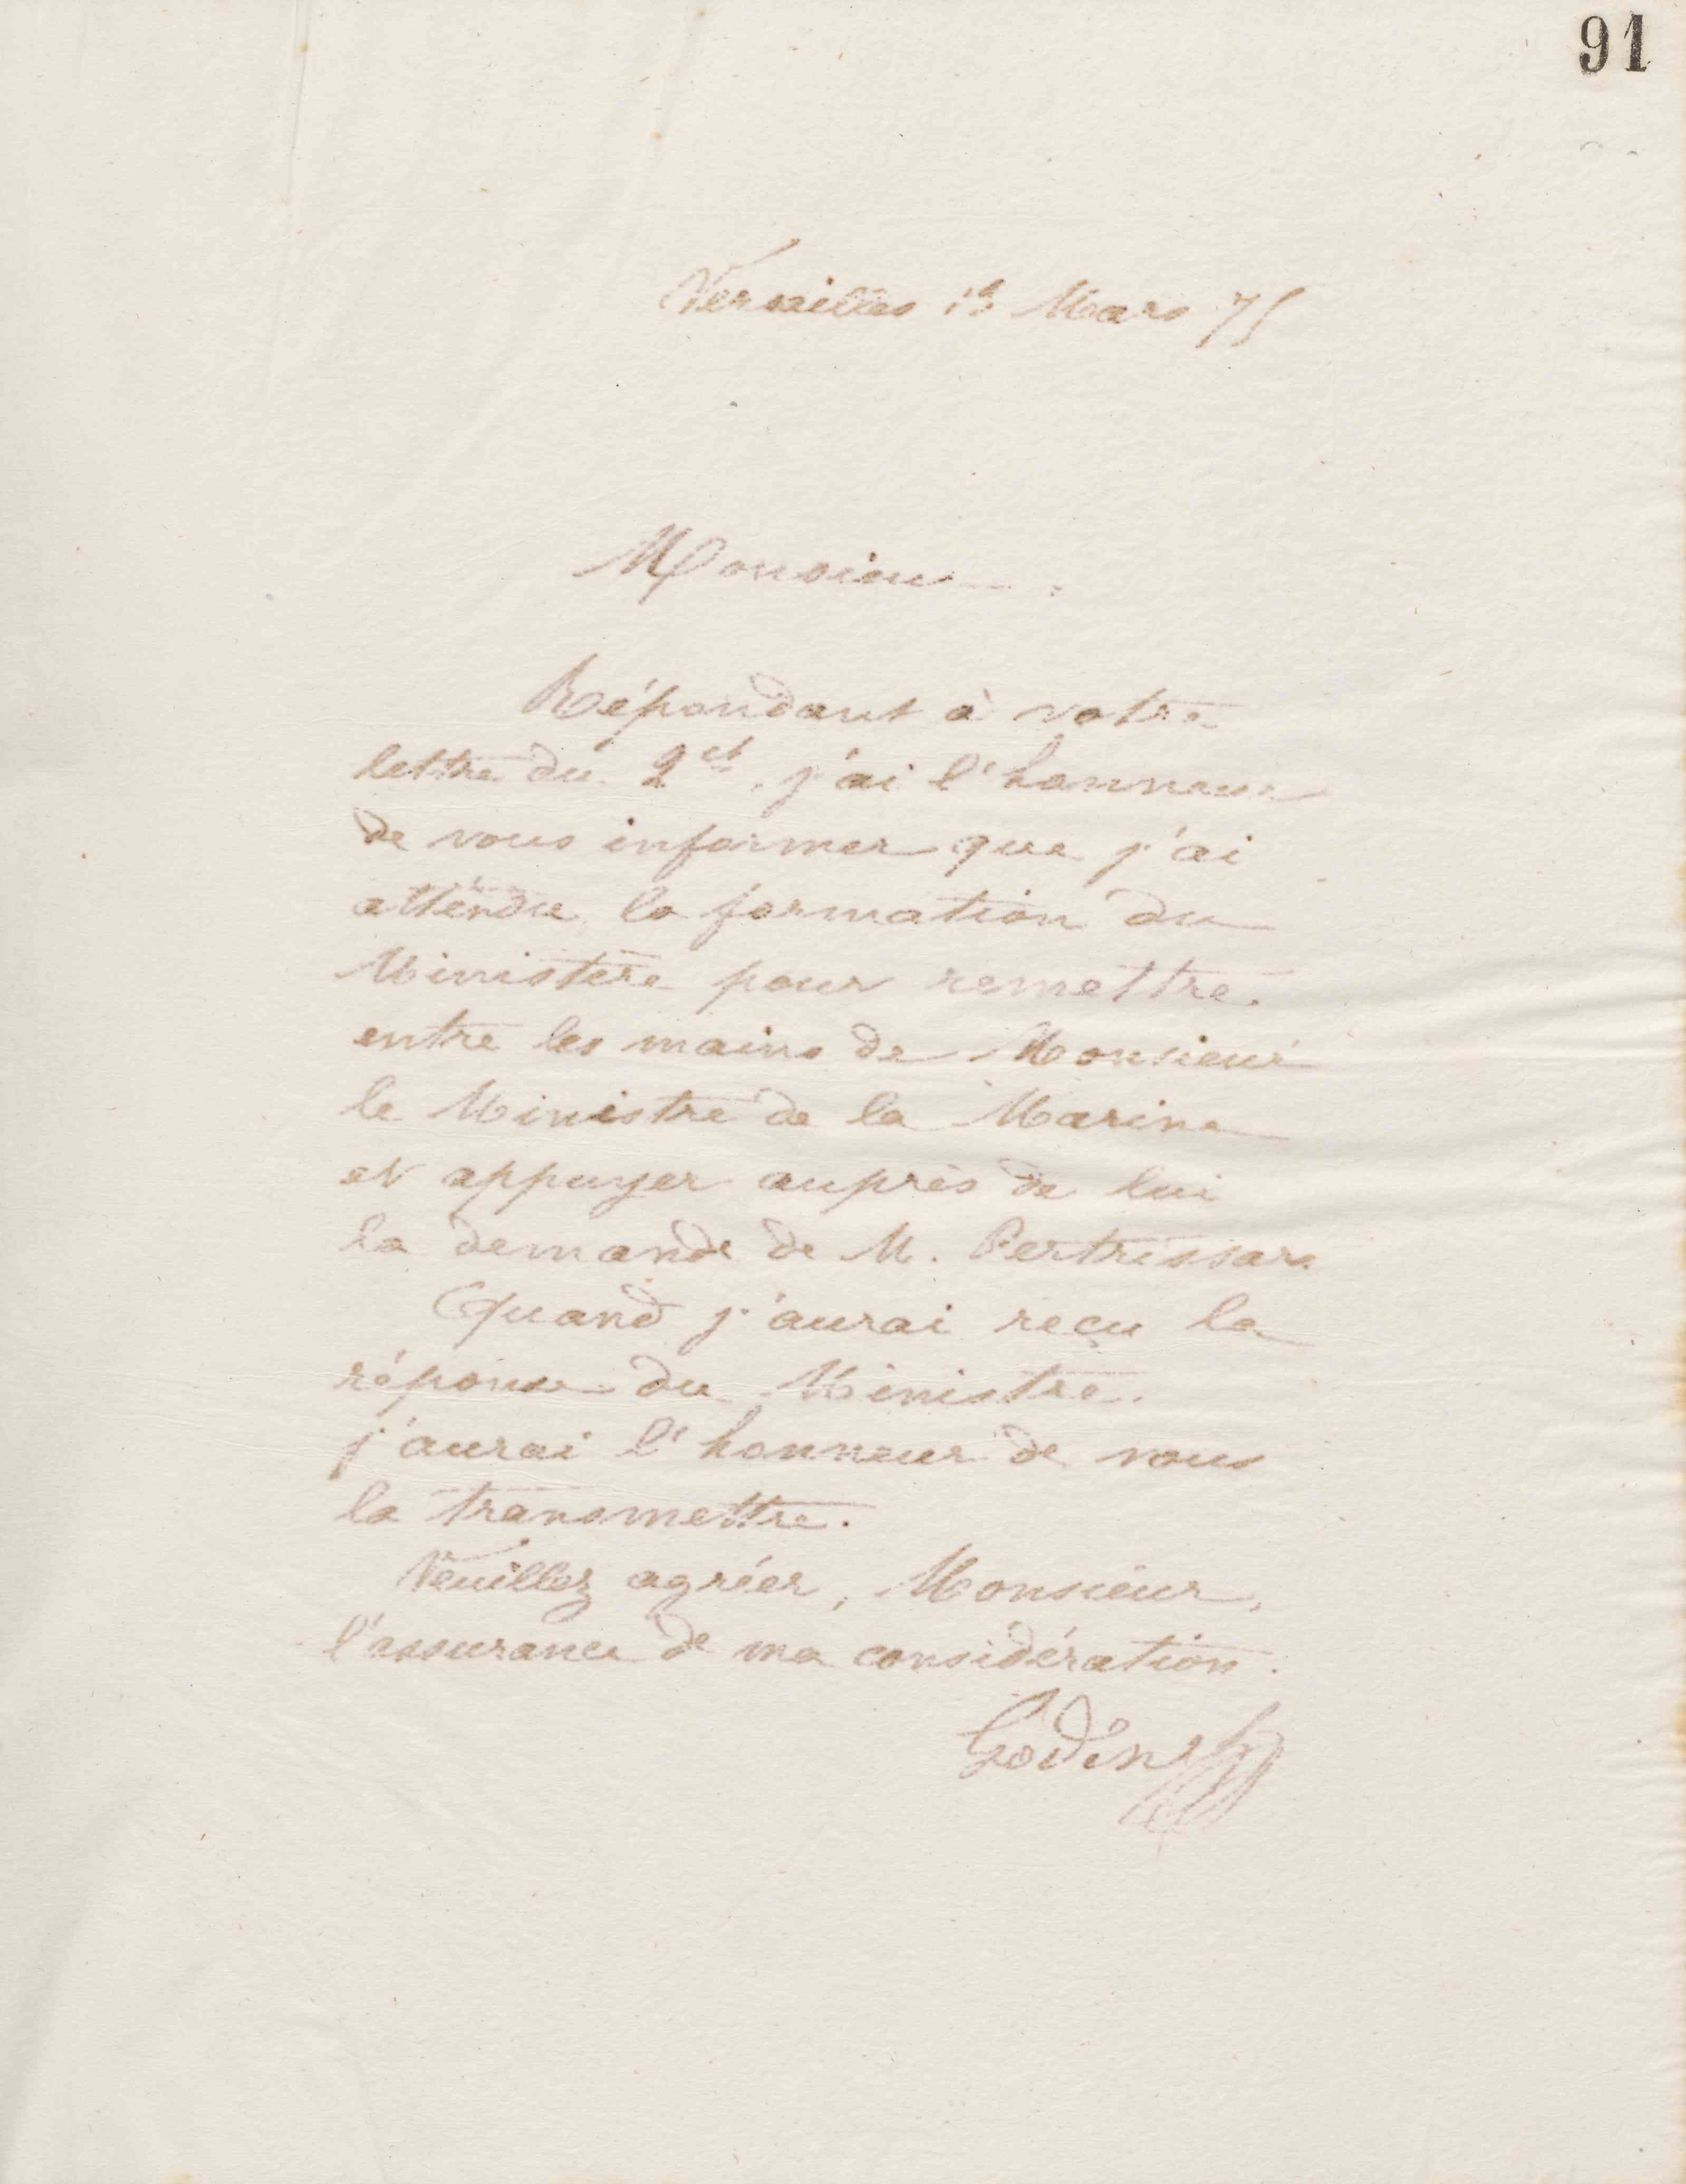 91
Versailles Mars 75
Monsieur
Répondant à votre
lettre du 2 ct, j'ai l'honneur
de vous informer que j'ai
attendu la formation du
Ministère pour remettre
entre les mains de Monsieur
le Ministre de la Marine
et appuyer auprès de lui
la demande de M.
Quand j'aurai reçu la
réponse du Ministre.
j'aurai l'honneur de vous
la transmettre.
Veuillez agréer, Monsieur,
l'assurance de ma considération.
Godin